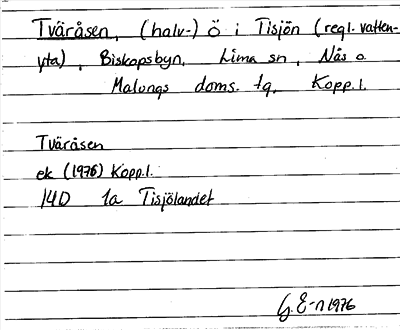 Tväråsen, (halv-) ö i Tisjön (regl. vatten-
yta), Biskopsbyn, Lima sn, Nås o.
Malungs doms. tg, Kopp.l.
Tväråsen
ek (1976) Kopp.l.
14D 1a Tisjölandet
G. E-n 1976